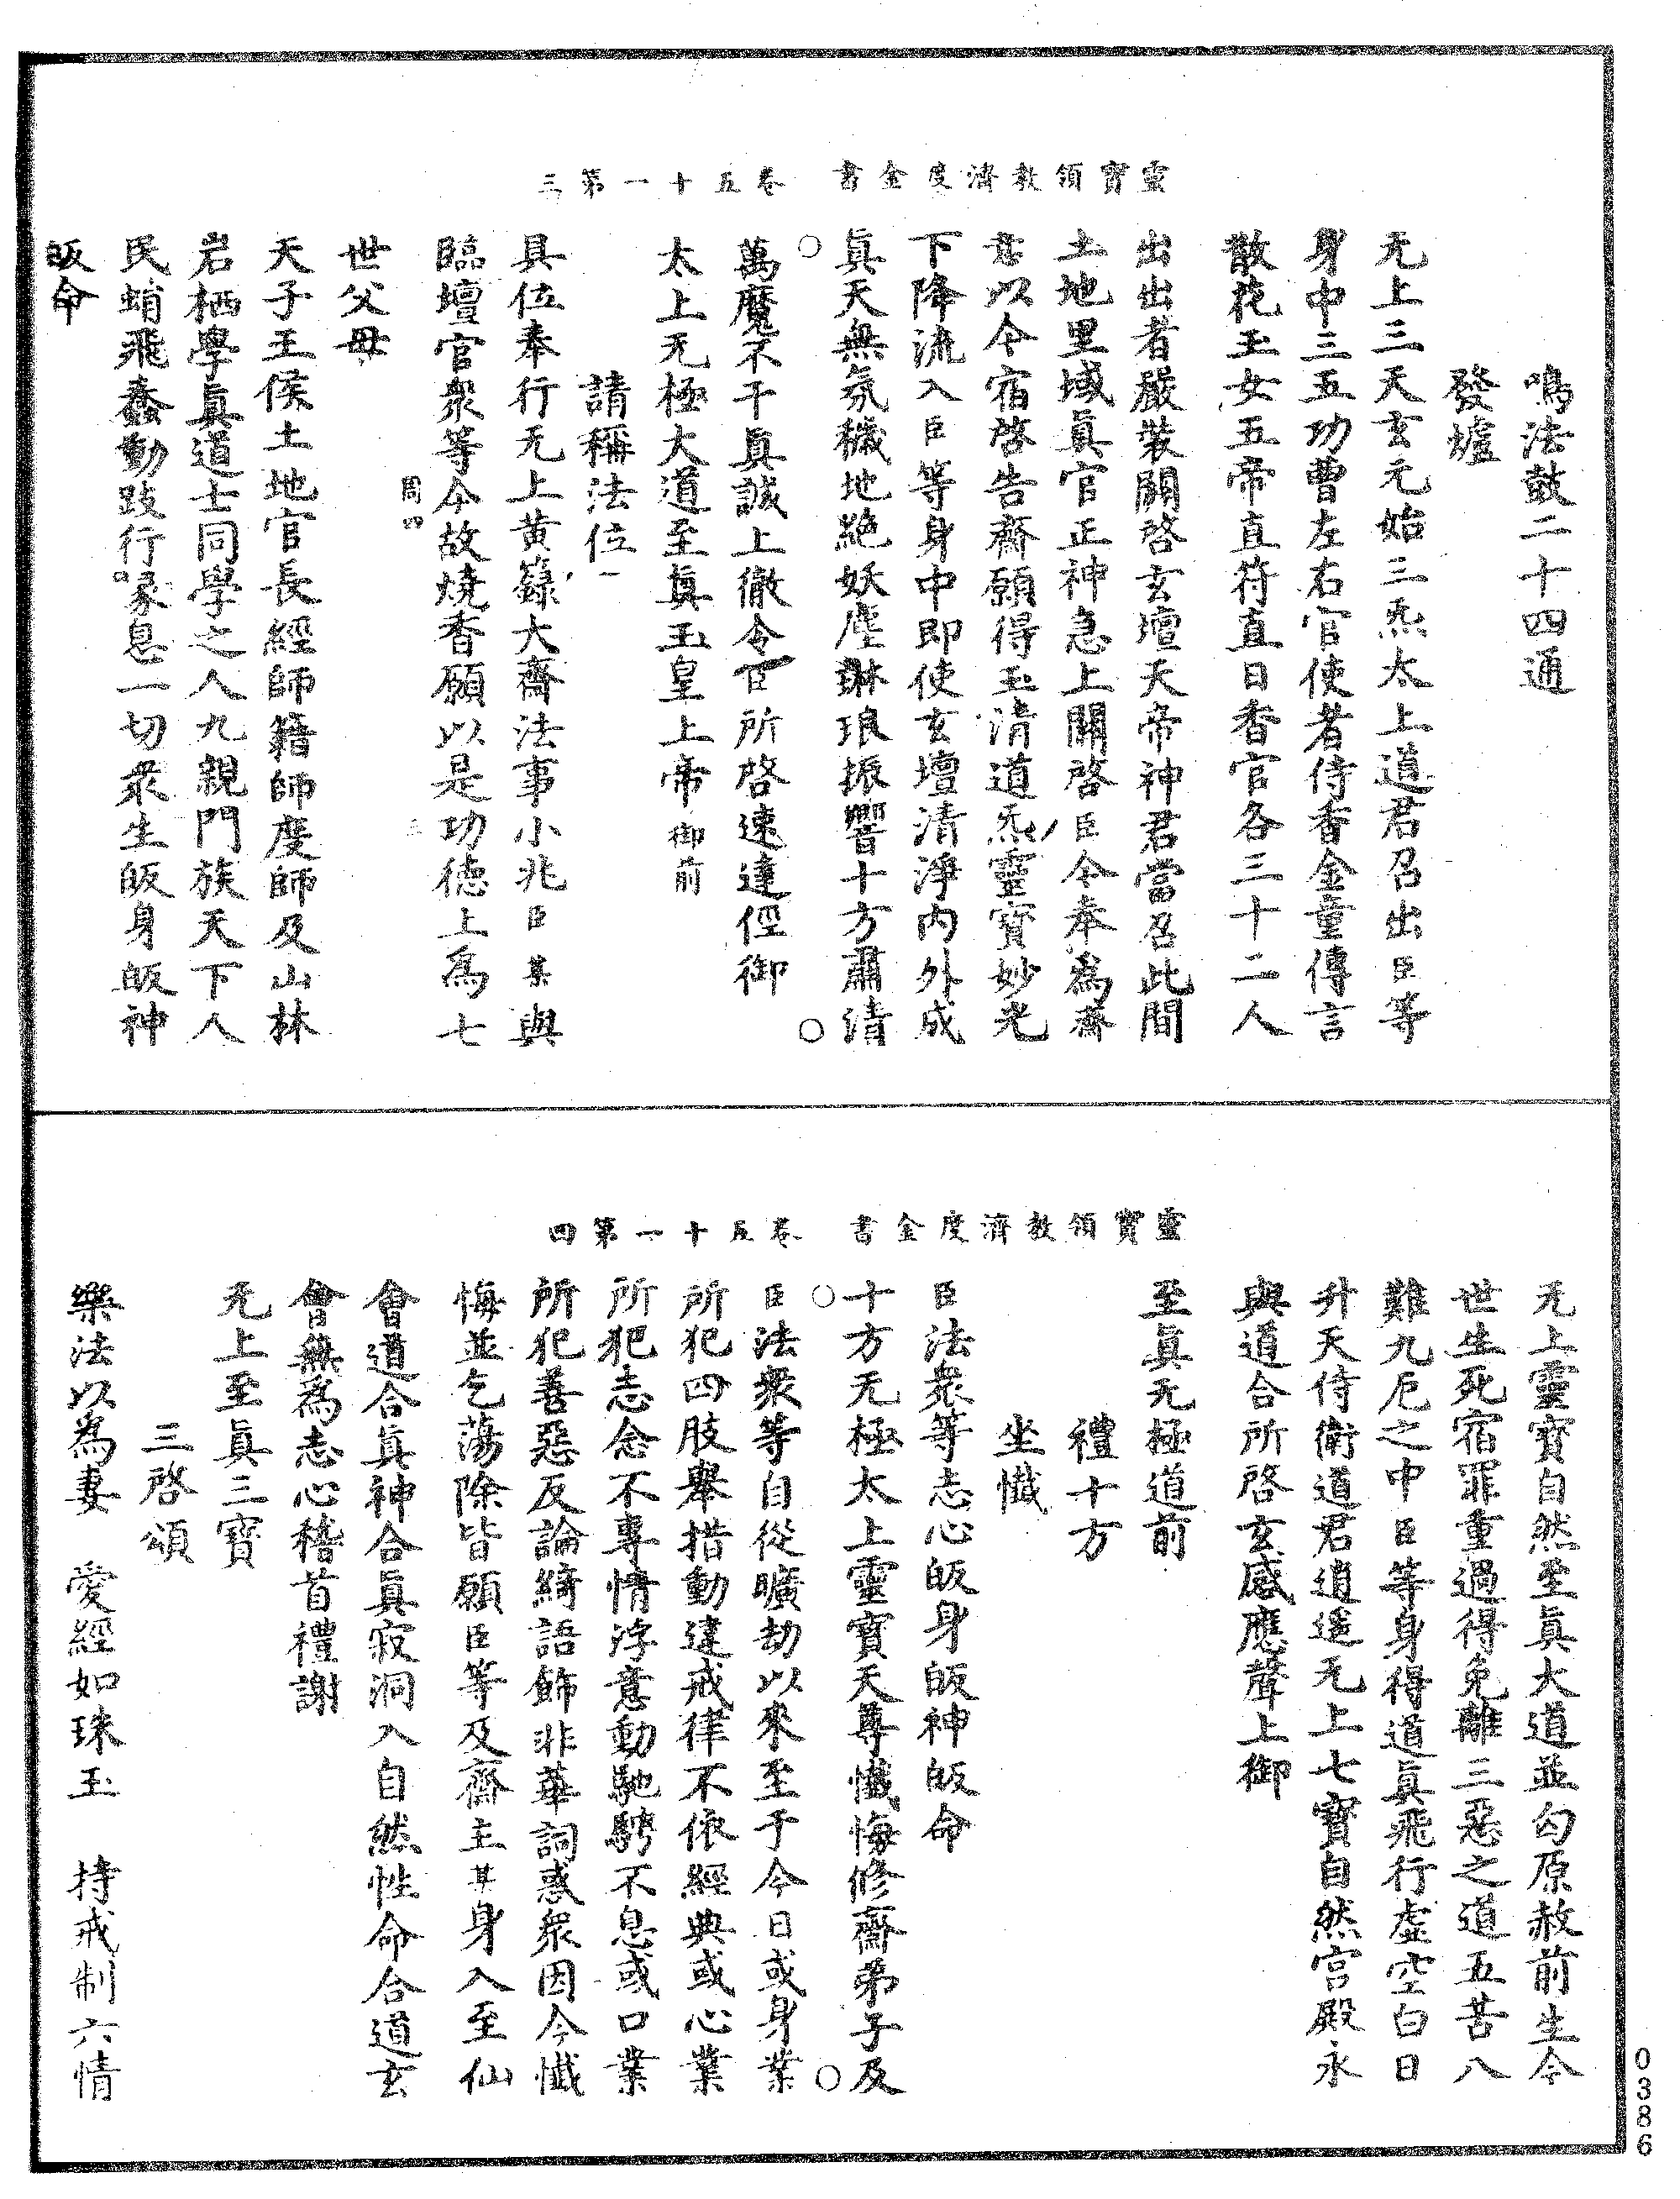 靈寶領教濟度金書 卷五十一第三
鳴法鼓二十四通
發爐
无上三天玄元始三炁太上道君召出臣等
身中三五功曹左右官使者侍香金童傳言
散花玉女五帝直符直日香官各三十二人
出出者嚴裝關啓玄壇天帝神君當召此間
土地里域眞官正神急上關啓臣今奉爲齋
意以今宿啓告齋願得玉清道炁靈寶妙光
下降流入臣等身中即使玄壇清淨内外成
眞天無氛穢地絶妖塵琳琅振響十方肅清
萬魔不干眞誠上徹令臣所啓速達徑御
太上无極大道至眞玉皇上帝御前
請稱法位
具位奉行无上黄籙大齋法事小兆臣某與
臨壇官衆等今故燒香願以是功德上爲七
周四
世父母
天子王侯土地官長經師籍師度師及山林
岩栖學眞道士同學之人九親門族天下人
民蛸飛蠢動跂行喙息一切衆生皈身皈神
皈命
靈寶領教濟度金書 卷五十一第四
无上靈寶自然至眞大道並匄原赦前生今
世生死宿罪重過得免離三惡之道五苦八
難九厄之中臣等身得道眞飛行虚空白日
升天侍衛道君逍遥无上七寶自然宫殿永
與道合所啓玄感應聲上御
至眞无極道前
禮十方
坐懺
臣法衆等志心皈身皈神皈命
十方无極太上靈寶天尊懺悔修齋弟子及
臣法衆等自從曠劫以來至于今日或身業
所犯四肢舉措動違戒律不依經典或心業
所犯志念不專情浮意動馳騁不息或口業
所犯善惡反論綺語飾非華詞惑衆因今懺
悔並乞蕩除皆願臣等及齋主某身入至仙
會道合眞神合眞寂洞入自然性命合道玄
會無爲志心稽首禮謝
无上至眞三寶
三啓頌
樂法以爲妻 愛經如珠玉 持戒制六情
0386